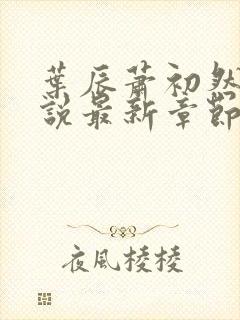 葉辰蕭初然
說最新章節
夜風棱棱